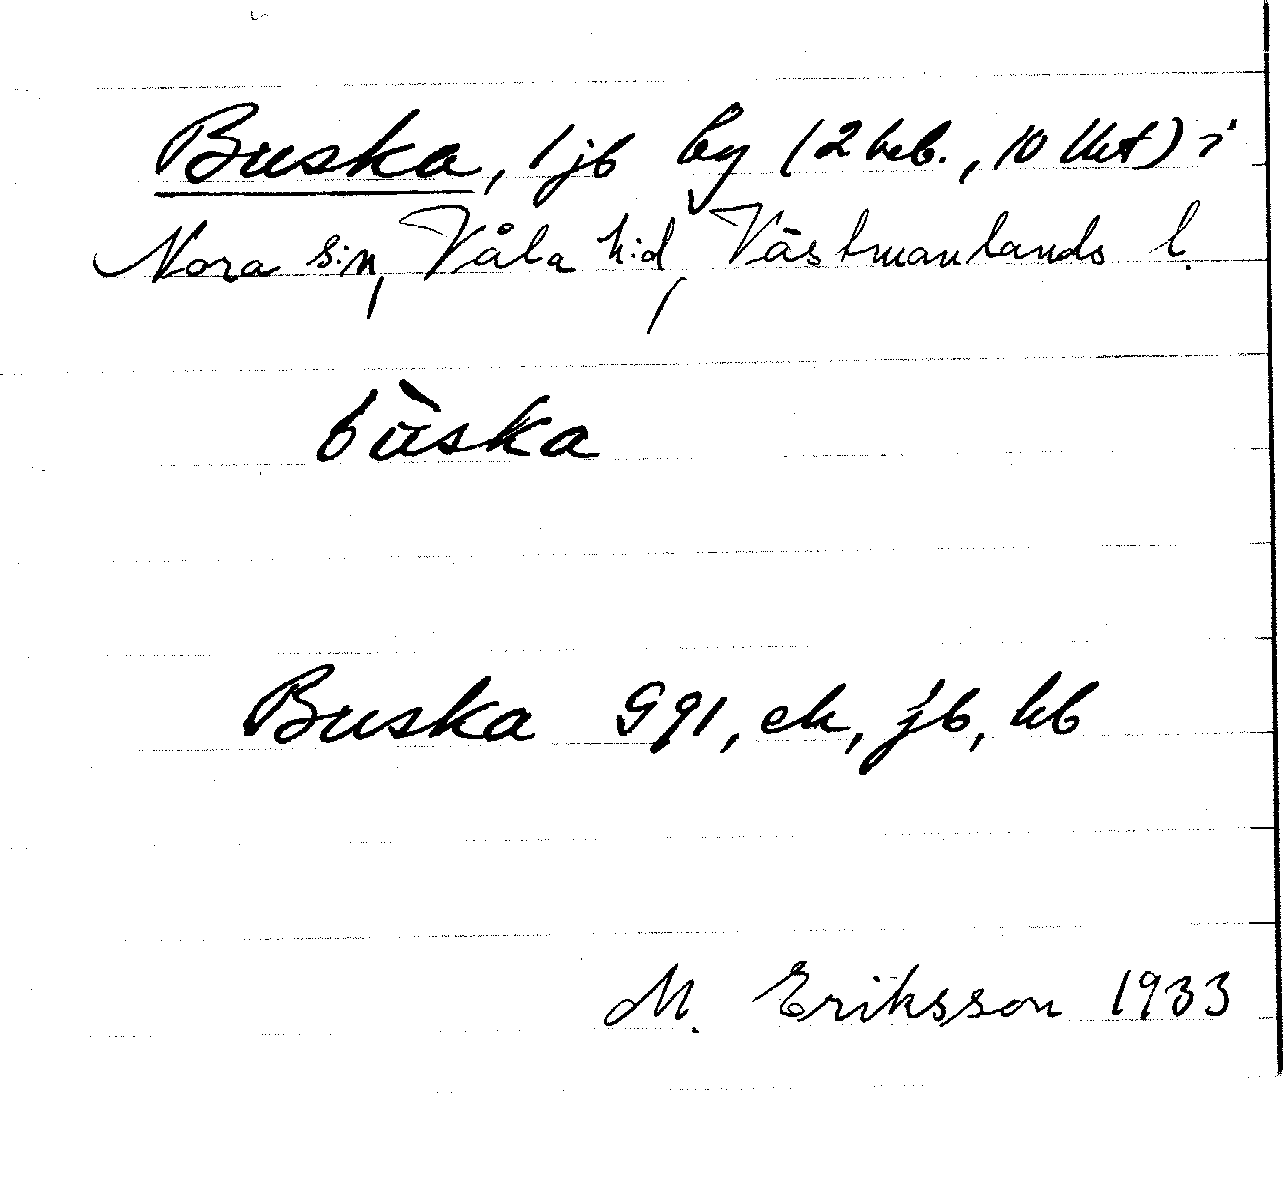 Buska, 1 jb by (2 heb., 10 lht) i
Nora s:n, Våla h:d, Västmanlands l.
bùska
Buska G91, ek, jb, kb
M. Eriksson 1933